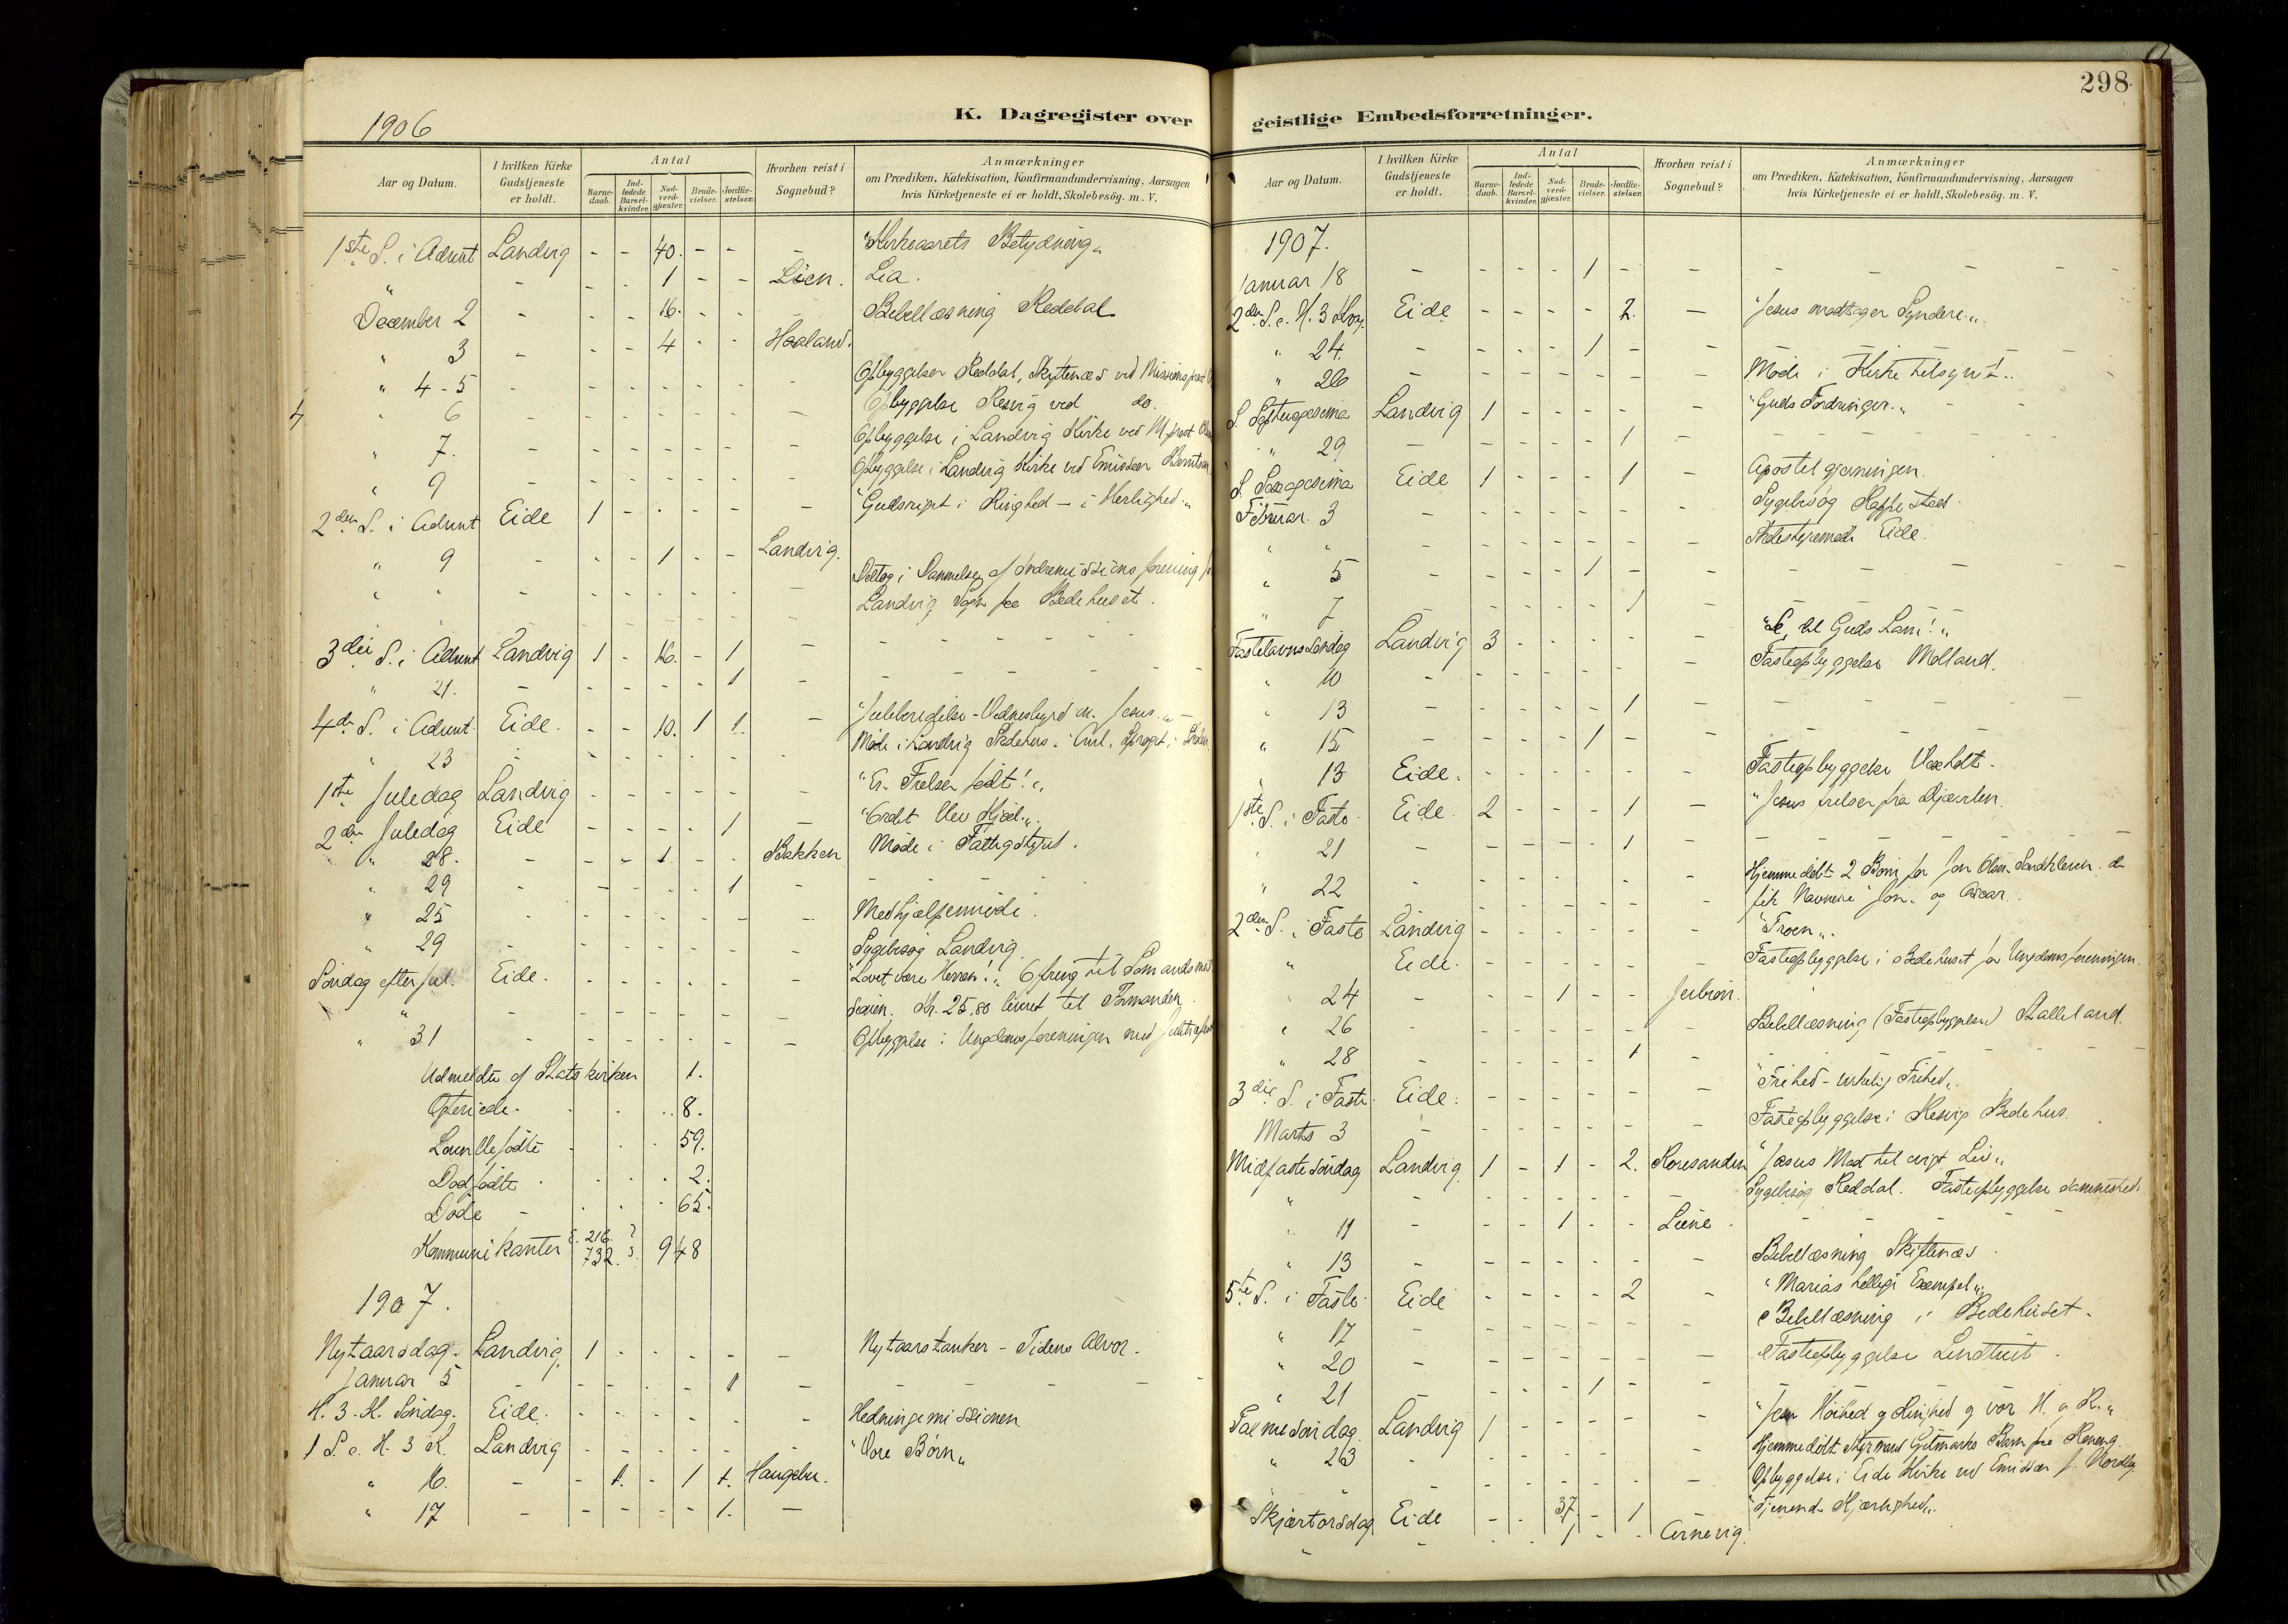 298
1906
K. Dagregister over
geistlige Embedsforretninger.
Aar og Datum.
I hvilken Kirke Gudstjeneste er holdt.
Antal
Barne-daab.
Ind-ledede Barsel-kvinder.
Nad-verd-gjæster.
Brude-vielser.
Jordfæ-stelser.
Hvorhen reist i Sognebud?
Anmærkninger
om Prædiken, Katekisation, Konfirmandundervisning, Aarsagen
hvis Kirketjeneste ei er holdt, Skolebesøg. m. V.
1ste S. i Advent Landvig - - 40. - - - "Kirkeaarets Betydning"
" - - - 1 - - Lien. Lia.
December 2 - - - 16. - - - Bibellæsning Reddal
" 3 - - - 4 - - Haaland.
" 4-5 - - - - - - - Opbyggelser Reddal, Skiftenæs ved
" 6 - - - - - - - Opbyggelse Resvig ved do.
" 7. - - - - - - - Opbyggelse i Landvig Kirke ved
" 9 - - - - - - - Opbyggelse i Landvig Kirke ved Emissær
2den S. i Advent Eide 1 - - - - - "Gudsriget i Ringhed - i Herlighed"
" 9 - - - 1 - - Landvig.
" " - - - - - - - Deltog i Dannelsen af Indremissionsforening
Landvig Sogn paa Bedehuset.
3die S. i Advent Landvig 1 - 16. - 1 -
" 21. - - - - - 1 -
4de S. i Advent. Eide. - - 10. 1 1. - "Juleberedelse - Vidnesbyrd om Jesus."
" 23 - - - - - - - Møde i Landvig
1ste Juledag Landvig - - - - - - "En Frelser født!"
2den Juledag Eide - - - - 1 - "Ordet blev Kjød."
" 28. - - - 1. - - Bakken Møde i Fattigstyret.
" 29 - - - - - 1 -
" 25 - - - - - - - Medhjælpermøde.
" 29 - - - - - - - Sygebesøg Landvig.
Søndag efter Jul. Eide. - - - - - - "Lovet være Herren!" Ofring til Sømandsmis
sionen. Kr. 25,80 leveret til Formanden.
" 31 - - - - - - - Opbyggelse i Ungdomsforeningen med
Udmeldte af Statskirken 1.
8.
Levendefødte 59.
Dødfødte 2.
Døde 65.
Kommunikanter 216. 732. 948
1907.
Nytaarsdag. Landvig, 1 - - - - - Nytaarstanker - Tidens Alvor.
Januar 5 - - - - - 1 -
H. 3. K. Søndag. Eide. - - - - - - Hedningemissionen.
1 S. e. H. 3 K. Landvig - - - - - - "Vore Børn"
" 16. - - 1. - 1 1. Haugebu.
" 17 - - - - - 1. -
Aar og Datum.
I hvilken Kirke Gudstjeneste er holdt.
Antal
Barne-daab.
Ind-ledede Barsel-kvinder.
Nad-verd-gjæster.
Brude-vielser.
Jordfæ-stelser.
Hvorhen reist i Sognebud?
Anmærkninger
om Prædiken, Katekisation, Konfirmandundervisning, Aarsagen
hvis Kirketjeneste ei er holdt, Skolebesøg. m. V.
1907.
Januar 18 - - - - 1 - -
2den S. e. H. 3 Kong. Eide - - - - 2. - "Jesus modtager Syndere."
" 24. - - - - 1 -
" 26 - - - - - - - Møde i Kirketilsynet.
S. Septuagesima Landvig 1 - - - - - "Guds Fordringer."
" 29 - - - - - 1 -
S. Sexagesima Eide 1 - - - 1 - Apostelgjerningen.
Februar. 3 - - - - - - - Sygebesøg
" " - - - - - - - Eide.
" 5 - - - - 1 - -
" 7 - - - - - 1 -
Fastelavns Søndag Landvig 3 - - - - - "Se, det Guds Lam!"
" 10 - - - - - - - Fasteopbyggelse Molland.
" 13 - - - - - 1 -
" 15 - - - - 1 - -
" 13 Eide. - - - - - - Fasteopbyggelse Vaxholt.
1ste S. i Faste. Eide. 2 - - - 1 - "Jesus frelser fra Djævelen.
" 21 - - - - - 1 -
" 22 - - - - - - - Hjemmedøbt 2 Børn for Jon Olsen
fik Navnene "Jon" og Oscar.
2den S. i Faste Landvig - - - - - - "Troen".
" Eide. - - - - - - Fasteopbyggelse i Bedehuset for Ungdomsforeningen.
" 24 - - - 1 - -
" 26 - - - - - - - Bibellæsning (Fasteopbyggelse) Stalleland.
" 28 - - - - - 1 -
3die S. i Faste. Eide. - - - - - - "Frihed - virkelig Frihed".
Marts 3 - - - - - - - Fasteopbyggelse i Resvig Bedehus.
Midfastesøndag Landvig. 1 - 1 - 2. "Jesus Mad til evigt Liv"
" - - - - - - Sygebesøg Reddal. Fasteopbyggelse sammesteds
" 11 - - - 1 - -
" 13 - - - - - - - Bibellæsning Skiftenæs.
5te S. i Faste. Eide - - - - 2 - "Marias hellige Exempel".
" 17 - - - - - - - Bibellæsning i Bedehuset.
" 20 - - - - - - - Fasteopbyggelse Lindtveit.
" 21 - - - - 1 - -
Palmesøndag. Landvig 1 - - - - - "Jesu Høihed og Ringhed og vor H. og R."
" 23 - - - - - - - Hjemmedøbt Styrmand Gitmarks Barn fra
Opbyggelse i Eide Kirke ved Emissær
Skjærtorsdag Eide - - 37. - 1 "Tjenende Kjærlighed".
" " - - 1 - - Arnevig.